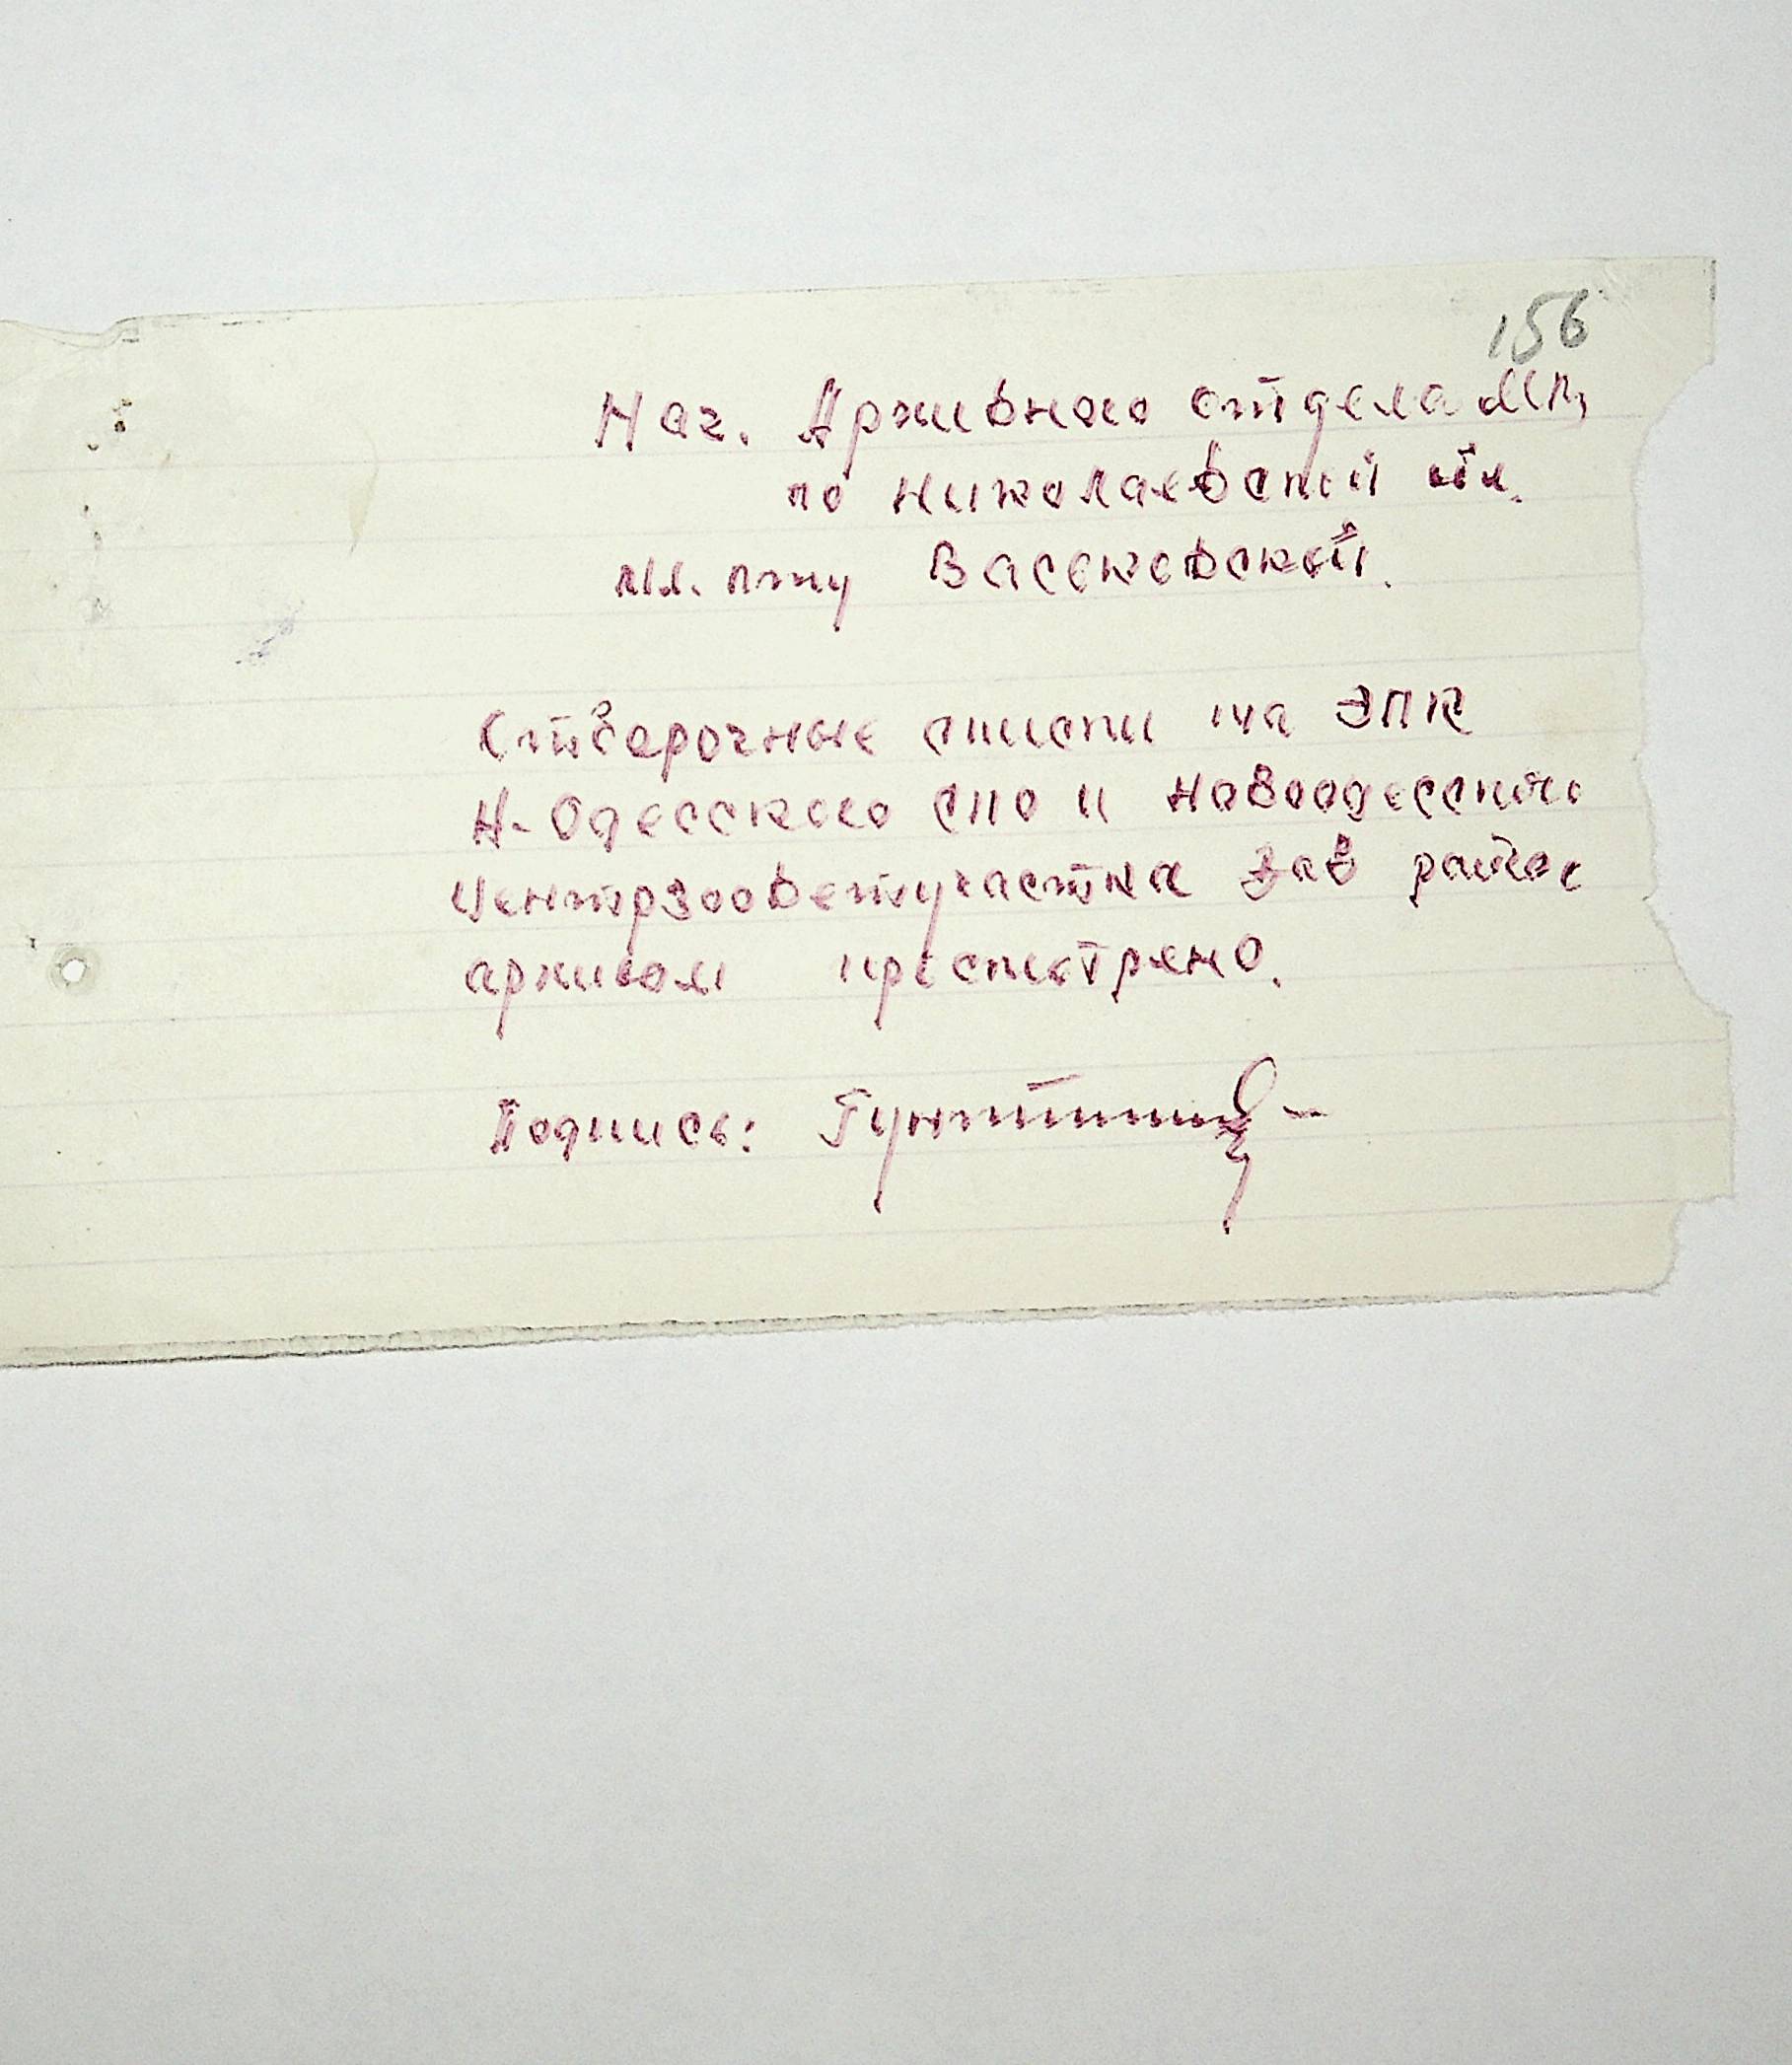 156
Нач. Архивного отдела МВД
по Николаевской обл.
мл. л-ту Васоковской.
Отборочные списки на ЭПК
Н-Одесского СПО и Новоодесского
Центрзооветучастка Зав райгос
архивом просмотрено.
Подпись: